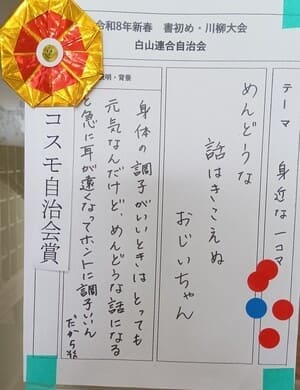 令和8年新春 書初め・川柳大会
白山連合自治会
テーマ 身近な一コマ
めんどうな
話はきこえぬ
おじいちゃん
説明・背景
身体の調子がいいときはとっても
元気なんだけど、めんどうな話になる
と急に耳が遠くなってホントに調子いいん
だから
コスモ自治会賞